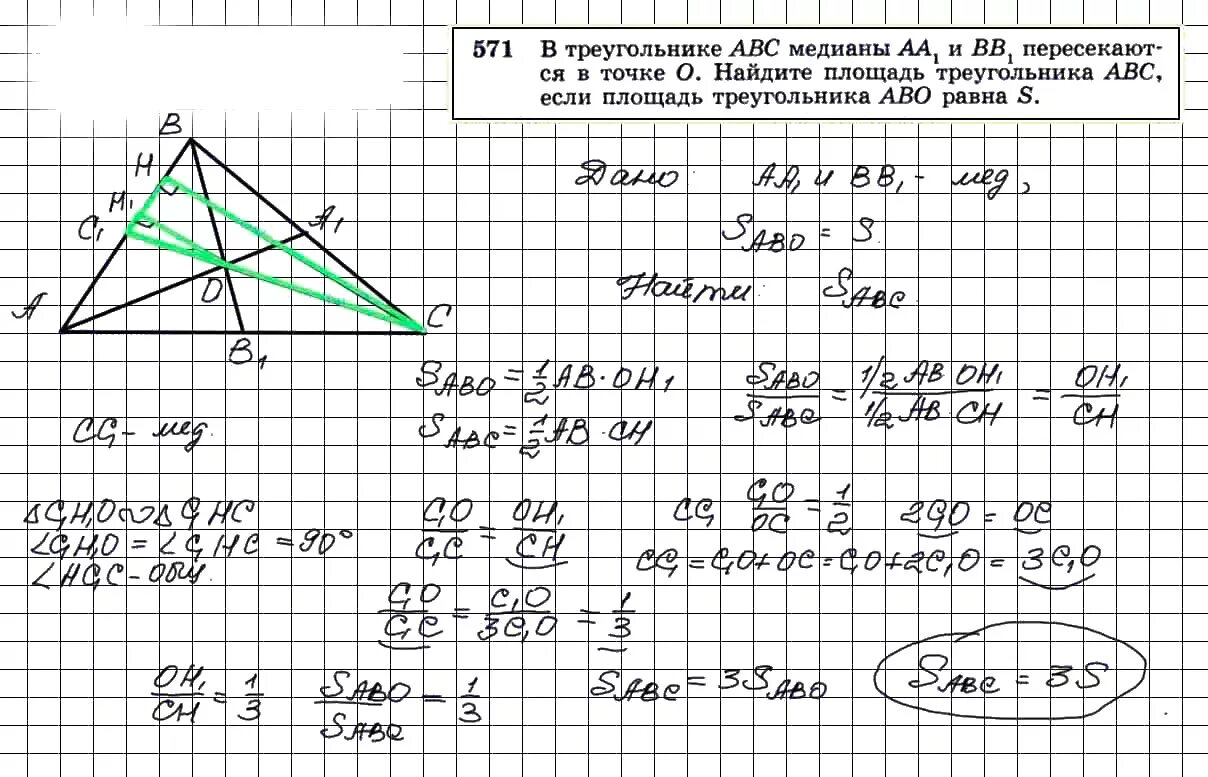 571 В треугольнике ABC медианы AA₁ и BB₁ пересекают-
ся в точке O. Найдите площадь треугольника ABC,
если площадь треугольника ABO равна S.
B
H
H₁
C₁
A₁
O
A
B₁
C
Дано: AA₁ и BB₁ - мед,
S_ABO = S.
Найти: S_ABC.
CC₁ - мед.
S_ABO = 1/2 AB · OH₁
S_ABC = 1/2 AB · CH
S_ABO/S_ABC = (1/2 AB OH₁)/(1/2 AB · CH) = OH₁/CH
△C₁H₁O ∾ △C₁HC
∠C₁H₁O = ∠C₁HC = 90°
∠HC₁C - общ.
C₁O/C₁C = OH₁/CH
CC₁ C₁O/OC = 1/2 2C₁O = OC
CC₁ = C₁O + OC = C₁O + 2C₁O = 3C₁O
C₁O/C₁C = C₁O/3C₁O = 1/3
OH₁/CH = 1/3 S_ABO/S_ABC = 1/3 S_ABC = 3S_ABO S_ABC = 3S